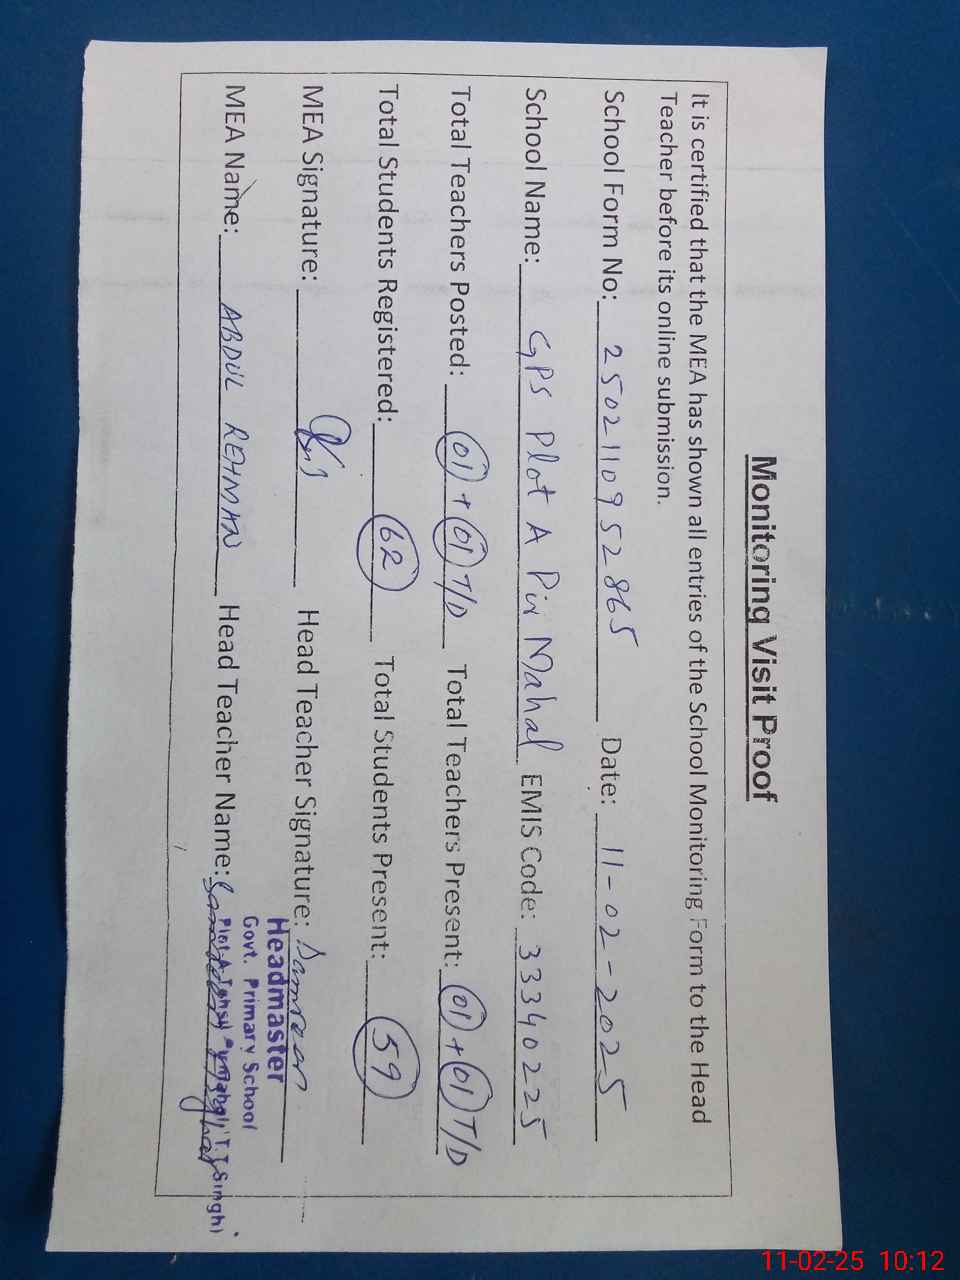 Monitoring Visit Proof
It is certified that the MEA has shown all entries of the School Monitoring Form to the Head
Teacher before its online submission.
School Form No: 250211095 2865 Date: 11-02-2025
School Name: GPS Plot A Pir Mahal EMIS Code: 33340225
Total Teachers Posted: 01 + 01 T/D Total Teachers Present: 01 + 01 T/D
Total Students Registered: 62 Total Students Present: 59
MEA Signature: Head Teacher Signature:
MEA Name: ABDUL REHMAN Head Teacher Name:
Headmaster
Govt. Primary School
Plot A Tehsil Pirmahal T.T Singh
11-02-25 10:12